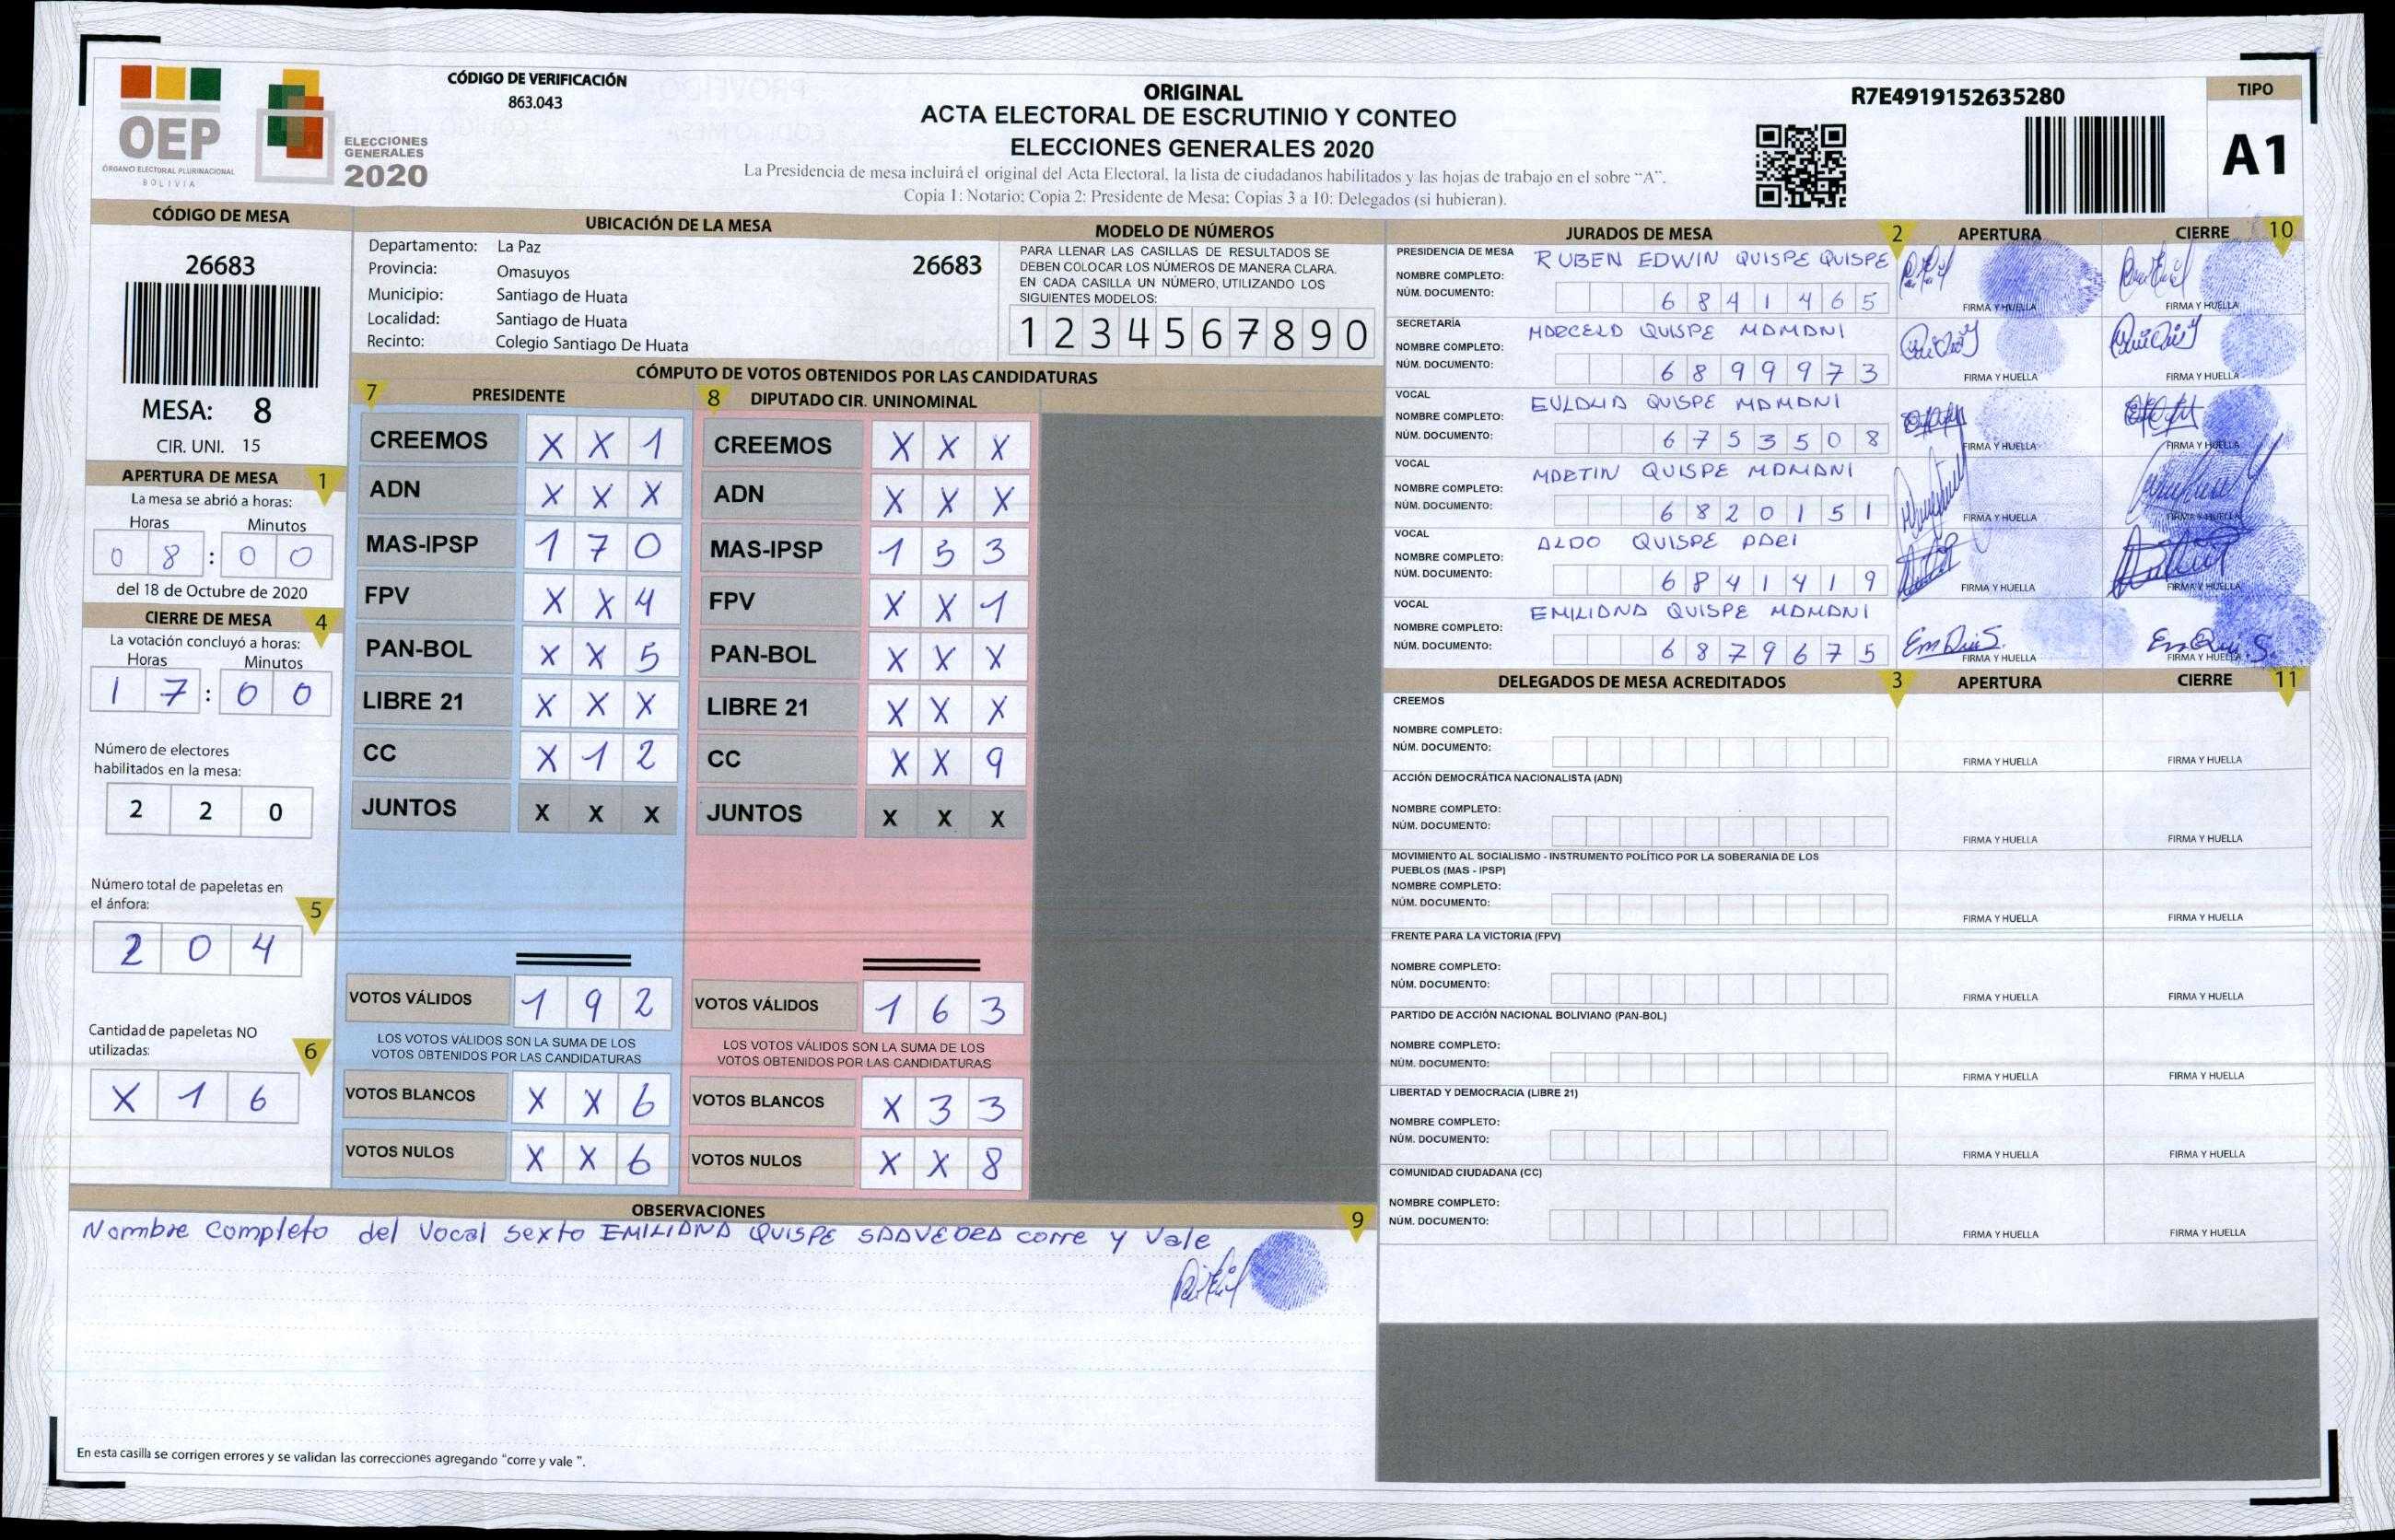 OEP
ÓRGANO ELECTORAL PLURINACIONAL
BOLIVIA
ELECCIONES
GENERALES
2020
CÓDIGO DE VERIFICACIÓN
863.043
ORIGINAL
ACTA ELECTORAL DE ESCRUTINIO Y CONTEO
ELECCIONES GENERALES 2020
La Presidencia de mesa incluirá el original del Acta Electoral, la lista de ciudadanos habilitados y las hojas de trabajo en el sobre “A”.
Copia 1: Notario; Copia 2: Presidente de Mesa; Copias 3 a 10: Delegados (si hubieran).
R7E4919152635280
TIPO
A1
CÓDIGO DE MESA
26683
MESA: 8
CIR. UNI. 15
APERTURA DE MESA 1
La mesa se abrió a horas:
Horas Minutos
0 8 : 0 0
del 18 de Octubre de 2020
CIERRE DE MESA 4
La votación concluyó a horas:
Horas Minutos
1 7 : 0 0
Número de electores
habilitados en la mesa:
2 2 0
Número total de papeletas en
el ánfora: 5
2 0 4
Cantidad de papeletas NO
utilizadas: 6
X 1 6
UBICACIÓN DE LA MESA
Departamento: La Paz
Provincia: Omasuyos
26683
Municipio: Santiago de Huata
Localidad: Santiago de Huata
Recinto: Colegio Santiago De Huata
MODELO DE NÚMEROS
PARA LLENAR LAS CASILLAS DE RESULTADOS SE
DEBEN COLOCAR LOS NÚMEROS DE MANERA CLARA.
EN CADA CASILLA UN NÚMERO, UTILIZANDO LOS
SIGUIENTES MODELOS:
1 2 3 4 5 6 7 8 9 0
CÓMPUTO DE VOTOS OBTENIDOS POR LAS CANDIDATURAS
7 PRESIDENTE
CREEMOS X X 1
ADN X X X
MAS-IPSP 1 7 0
FPV X X 4
PAN-BOL X X 5
LIBRE 21 X X X
CC X 1 2
JUNTOS X X X
VOTOS VÁLIDOS 1 9 2
LOS VOTOS VÁLIDOS SON LA SUMA DE LOS
VOTOS OBTENIDOS POR LAS CANDIDATURAS
VOTOS BLANCOS X X 6
VOTOS NULOS X X 6
8 DIPUTADO CIR. UNINOMINAL
CREEMOS X X X
ADN X X X
MAS-IPSP 1 5 3
FPV X X 1
PAN-BOL X X X
LIBRE 21 X X X
CC X X 9
JUNTOS X X X
VOTOS VÁLIDOS 1 6 3
LOS VOTOS VÁLIDOS SON LA SUMA DE LOS
VOTOS OBTENIDOS POR LAS CANDIDATURAS
VOTOS BLANCOS X 3 3
VOTOS NULOS X X 8
JURADOS DE MESA 2 APERTURA CIERRE 10
PRESIDENCIA DE MESA
NOMBRE COMPLETO: RUBEN EDWIN QUISPE QUISPE
NÚM. DOCUMENTO: 6 8 4 1 4 6 5
FIRMA Y HUELLA FIRMA Y HUELLA
SECRETARÍA
NOMBRE COMPLETO: MARCELO QUISPE MAMANI
NÚM. DOCUMENTO: 6 8 9 9 9 7 3
FIRMA Y HUELLA FIRMA Y HUELLA
VOCAL
NOMBRE COMPLETO: EULALIA QUISPE MAMANI
NÚM. DOCUMENTO: 6 7 5 3 5 0 8
FIRMA Y HUELLA FIRMA Y HUELLA
VOCAL
NOMBRE COMPLETO: MARTIN QUISPE MAMANI
NÚM. DOCUMENTO: 6 8 2 0 1 5 1
FIRMA Y HUELLA FIRMA Y HUELLA
VOCAL
NOMBRE COMPLETO: ALDO QUISPE
NÚM. DOCUMENTO: 6 8 4 1 4 1 9
FIRMA Y HUELLA FIRMA Y HUELLA
VOCAL
NOMBRE COMPLETO: EMILIANA QUISPE MAMANI
NÚM. DOCUMENTO: 6 8 7 9 6 7 5
FIRMA Y HUELLA FIRMA Y HUELLA
DELEGADOS DE MESA ACREDITADOS 3 APERTURA CIERRE 11
CREEMOS
NOMBRE COMPLETO:
NÚM. DOCUMENTO:
FIRMA Y HUELLA FIRMA Y HUELLA
ACCIÓN DEMOCRÁTICA NACIONALISTA (ADN)
NOMBRE COMPLETO:
NÚM. DOCUMENTO:
FIRMA Y HUELLA FIRMA Y HUELLA
MOVIMIENTO AL SOCIALISMO - INSTRUMENTO POLÍTICO POR LA SOBERANIA DE LOS
PUEBLOS (MAS - IPSP)
NOMBRE COMPLETO:
NÚM. DOCUMENTO:
FIRMA Y HUELLA FIRMA Y HUELLA
FRENTE PARA LA VICTORIA (FPV)
NOMBRE COMPLETO:
NÚM. DOCUMENTO:
FIRMA Y HUELLA FIRMA Y HUELLA
PARTIDO DE ACCIÓN NACIONAL BOLIVIANO (PAN-BOL)
NOMBRE COMPLETO:
NÚM. DOCUMENTO:
FIRMA Y HUELLA FIRMA Y HUELLA
LIBERTAD Y DEMOCRACIA (LIBRE 21)
NOMBRE COMPLETO:
NÚM. DOCUMENTO:
FIRMA Y HUELLA FIRMA Y HUELLA
COMUNIDAD CIUDADANA (CC)
NOMBRE COMPLETO:
NÚM. DOCUMENTO:
FIRMA Y HUELLA FIRMA Y HUELLA
OBSERVACIONES 9
Nombre Completo del Vocal Sexto EMILIANA QUISPE SAAVEDRA corre y Vale
En esta casilla se corrigen errores y se validan las correcciones agregando "corre y vale ".